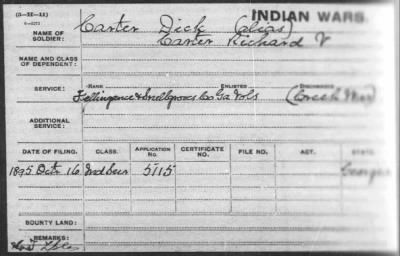 (3-22-11)
6-3273
INDIAN WARS.
NAME OF SOLDIER: Carter Dick (alias)
Carter Richard V
NAME AND CLASS OF DEPENDENT:
RANK ENLISTED DISCHARGED
SERVICE: & Snellgroves Co Ga Vols (Creek War)
ADDITIONAL SERVICE:
DATE OF FILING. CLASS. APPLICATION NO. CERTIFICATE NO. FILE NO. ACT. STATE
1895 Oct 16 5115 Georgia
BOUNTY LAND:
REMARKS: